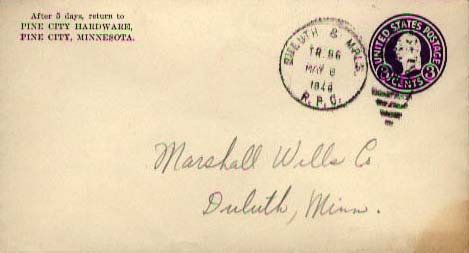 After 5 days, return to
PINE CITY HARDWARE,
PINE CITY, MINNESOTA.
DULUTH & MPLS.
TR. 86
MAY 8
1946
R.P.O.
UNITED STATES POSTAGE
3 CENTS 3
Marshall Wells Co
Duluth, Minn.